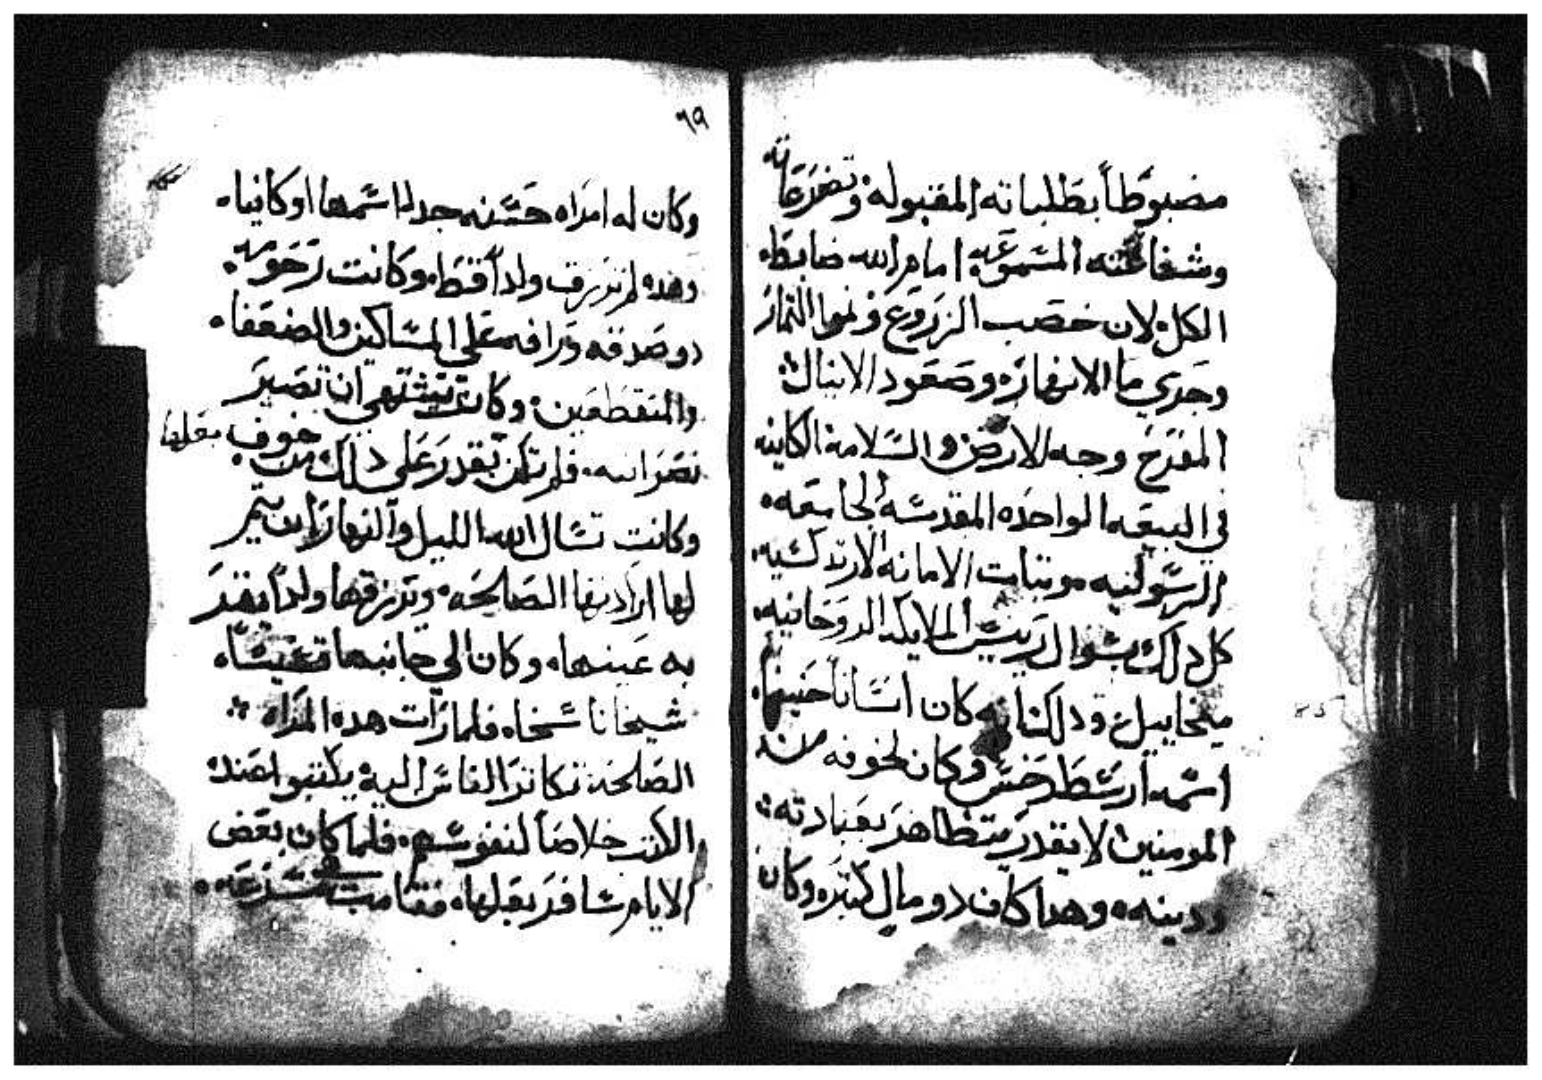 مضبوطاً بطلباته المقبوله وتضرعاته
وشفاعته المسموعه امام الله ضابط
الكل لان خصب الزروع ونموا الثمار
وجري ما الانهار وصعود الانيال
المفرح وجه الارض والسلامه الكاينه
في البيعه الواحده المقدسه الجامعه
الرسوليه وثبات الامانه الارتدكسيه
كل دلك بسوال رييس الملايكه الروحانيه
ميخاييل ودلك انه كان انساناً
اسمه وكان لخوفه من
المومنين لا يقدر يتظاهر بعبادته
ودينه وهدا كان دو مال كتير وكان
٦٩
وكان له امراه حسنه جدا اسمها اوكانيا
وهده لم ترزق ولداً قط وكانت
دو صدقه ورافه على المساكين والضعفا
والمنقطعين وكانت تشتهي ان تصير
نصرانيه فلم تكن تقدر على دلك من خوف بعلها
وكانت تسال الله الليل والنهار ان يتم
لها ارادتها الصالحه وترزقها ولداً تقر
به عينها وكان الي جانبها
شيخانا شخا فلما رات هده المراه
الصالحه الناس اليه يكتبوا عنده
خلاصاً لنفوسهم فلما كان بعض
الايام سافر بعلها فقامت مسرعه